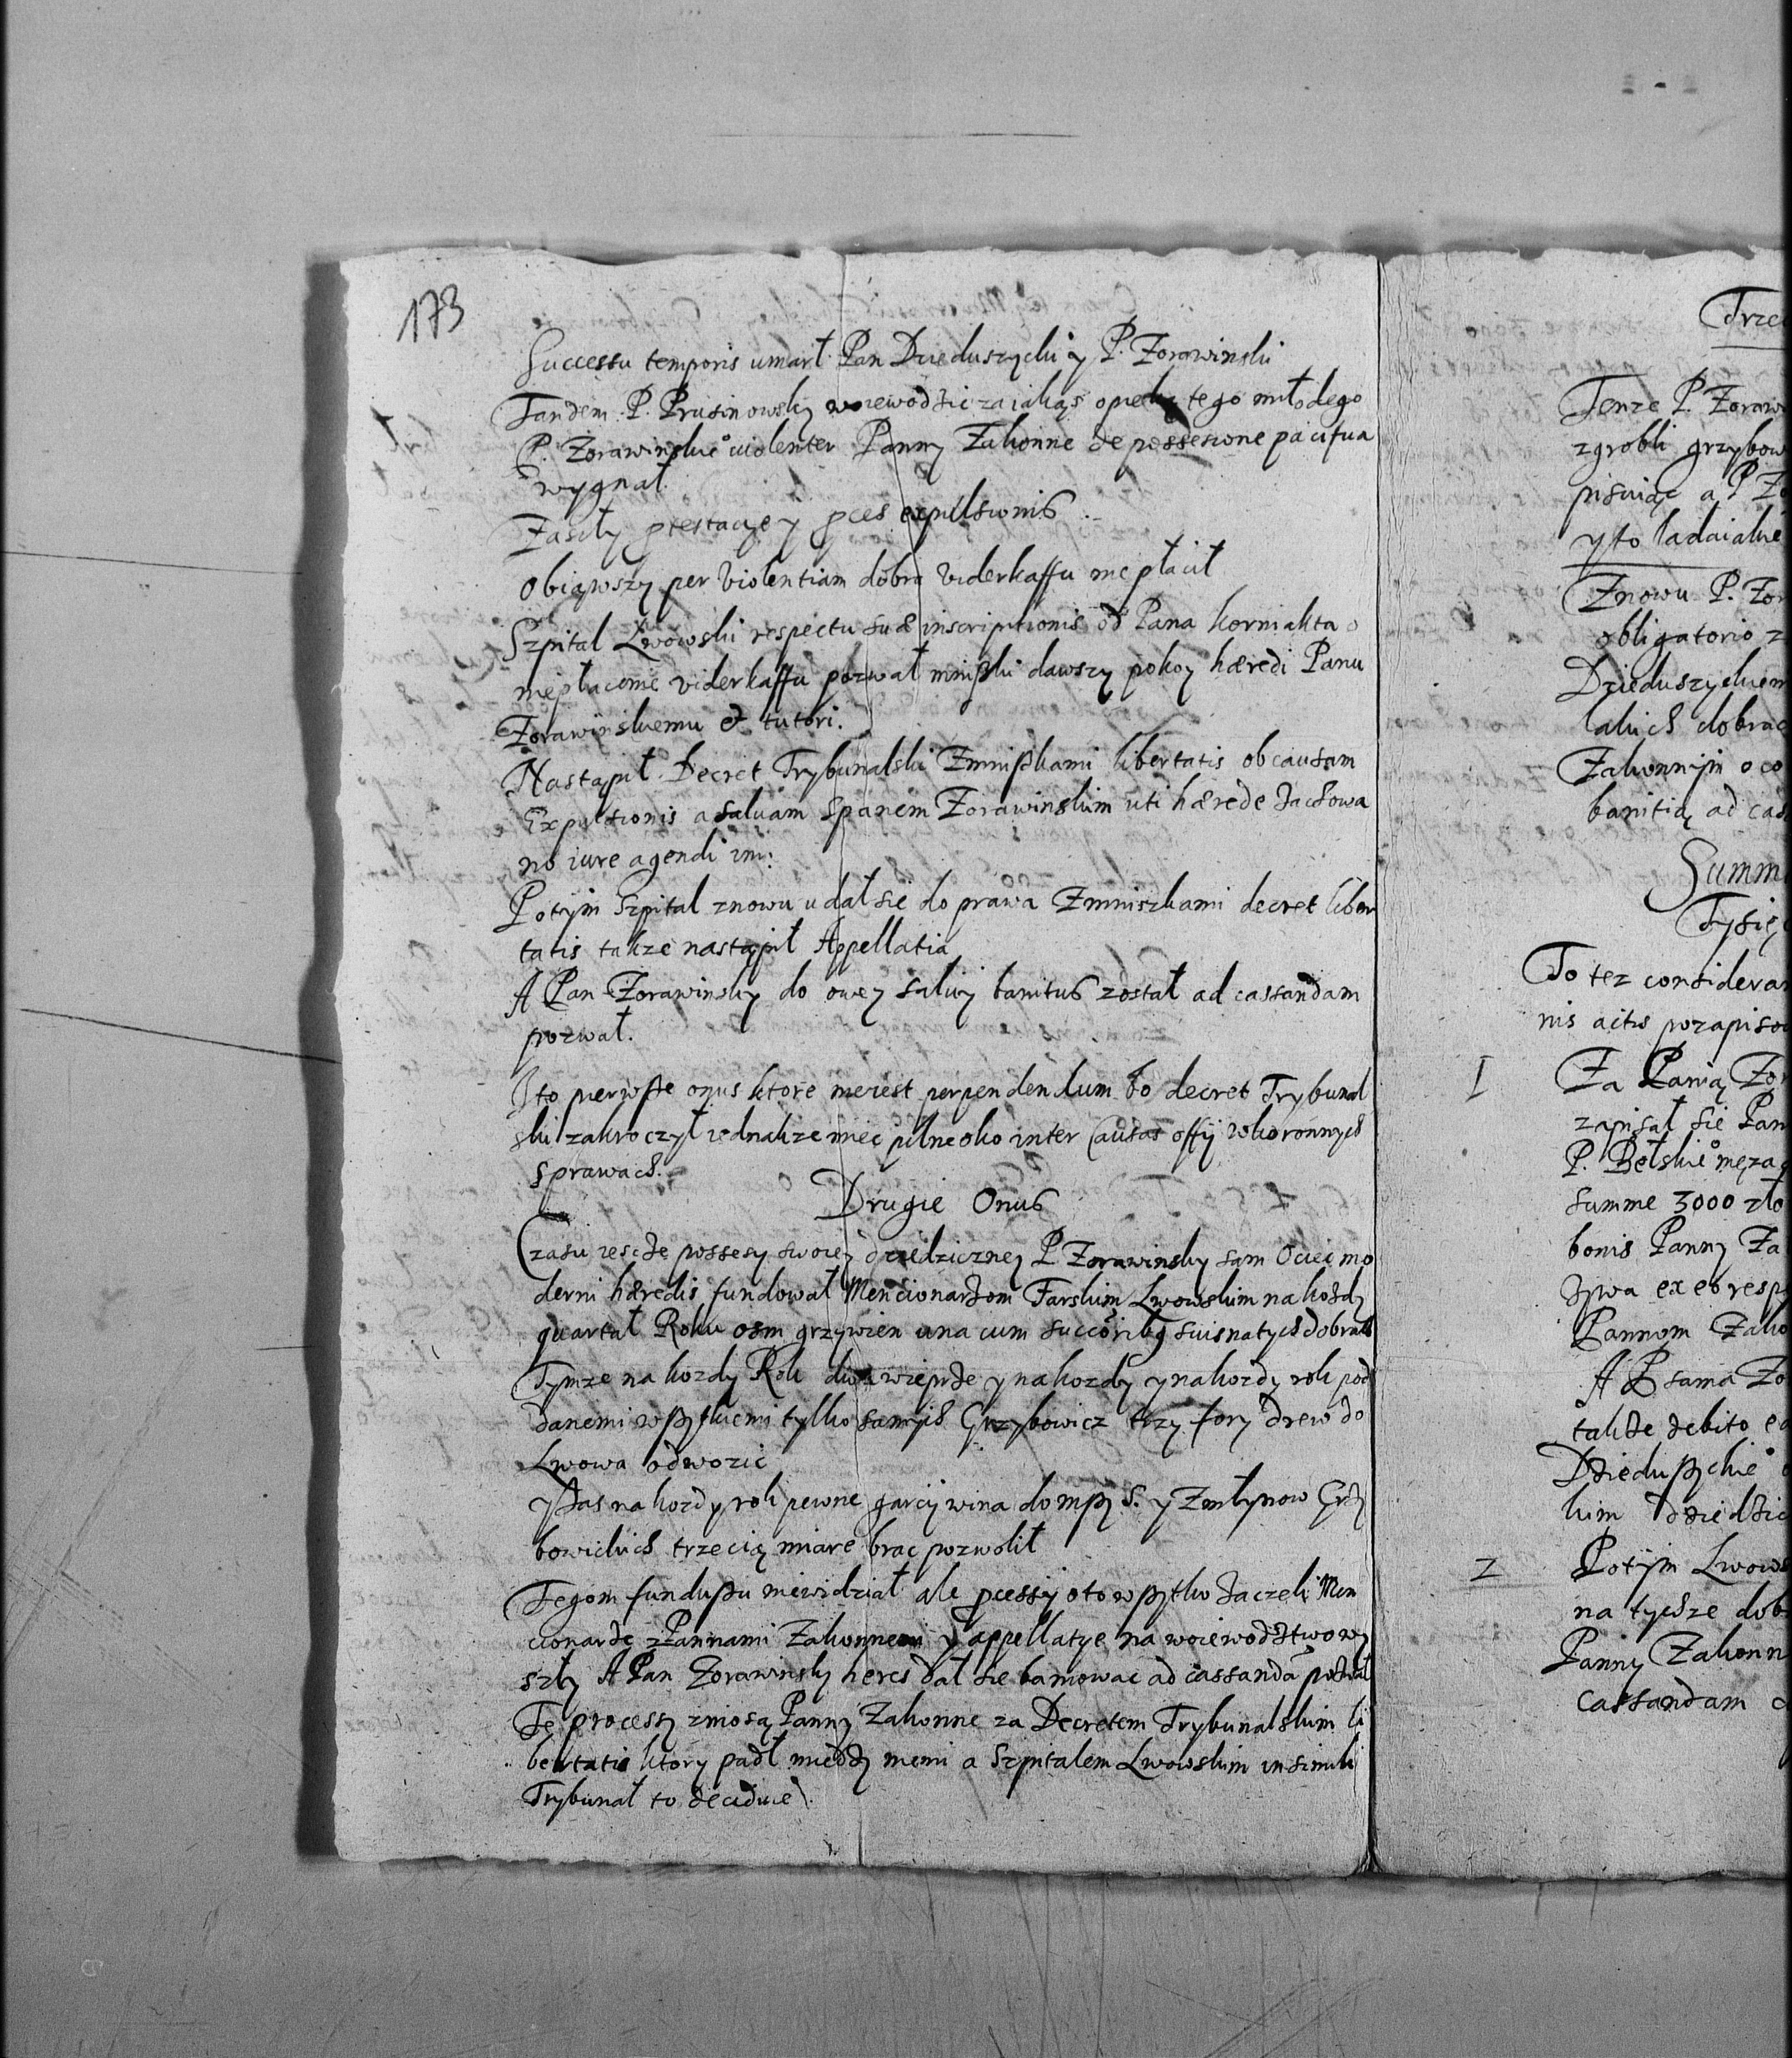 173
Successu temporis umarł Pan Dzieduszycki y P. Zorawinski
Tandem P. Prusinowsky woiewodzic za iakąs opieką tego młodego
P. Zorawinskie° violenter Panny Zakonne de possesione pacifica
wygnał
Zaszły prestacye y pces expulsionis
Obiąwszy per violentiam dobra viderkaffu nie płacił
Szpital Lwowski respectu suæ inscriptionis od Pana korniakta o
niepłacenie viderkaffu pozwał mniszki dawszy pokoy hæredi Panu
Zorawinskiemu et tutori.
Nastąpił Decret Trybunalski Zmniszkami libertatis ob causam
Expulsionis a salvam spanem Zorawinskim uti hærede zachowa
no iure agendi im:
Potym Szpital znowu udał sie do prawa Zmniszkami decret liber
tatis takze nastąpił Appellatia
A Pan Zorawinsky do owey salvy banitus został ad cassandam
pozwał.
I to pierwsze onus ktore nieiest perpendendum bo decret Trybunal
ski zakroczył iednakze miec pilne oko inter causas offij w koronnych
sprawach.
Drugie Onus
Czasu ieszcze possesy swoiey dziedziczney P Zorawinsky sam Ociec mo
derni hæredis fundował Mencionarzom Farskim Lwowskim na kozdy
quartał Roku osm grzywien una cum succoribg suis na tych dobrach
Tymze na kozdy Rok dwa wieprze y nakozdy y nakozdy rok pod
danemi wszytkiemi tylko samych Grzybowicz trzy fory drew do
Lwowa odwozic
y zas na kozdy rok pewne garcy wina do mszy S. y Zmłynow Grzy
bowickich trzecią miare brac pozwolił
Tegom funduszu niewidział ale pcessy oto wszytko zaczeli Men
cionarze zPannami Zakonnemi y appellatye na woiewodztwo wy
szły A Pan Zorawinsky heres dał sie banowac ad cassandã pozwał
Te processy zniosą Panny Zakonne za Decretem Trybunalskim li
bertatis ktory padł miedzy niemi a Szpitalem Lwowskim in simili
Trybunał to deciduie.
Trze
Tenze P. Zoraw
zgrobli grzybow
pisuiąc a P Zo
y to ladaiakie
Znowu P. Zor
obligatorio z
Dzieduszyckiem
takich dobrac
Zakonnym o co
banitią ad cas
Summ
Tysię
To tez consideran
nis actis pozapiso
1 Za Panią Zor
zapisał sie Pan
P. Bełskie° męza
summe 3000 zło
bonis Panny Za
zywa ex eo resp
Pannom Zako
A P sama Zo
takze debito eo
Dzieduszyckie°
kim dziedzic
2 Potym Lwows
na tychze dob
Panny Zakonn
cassandam